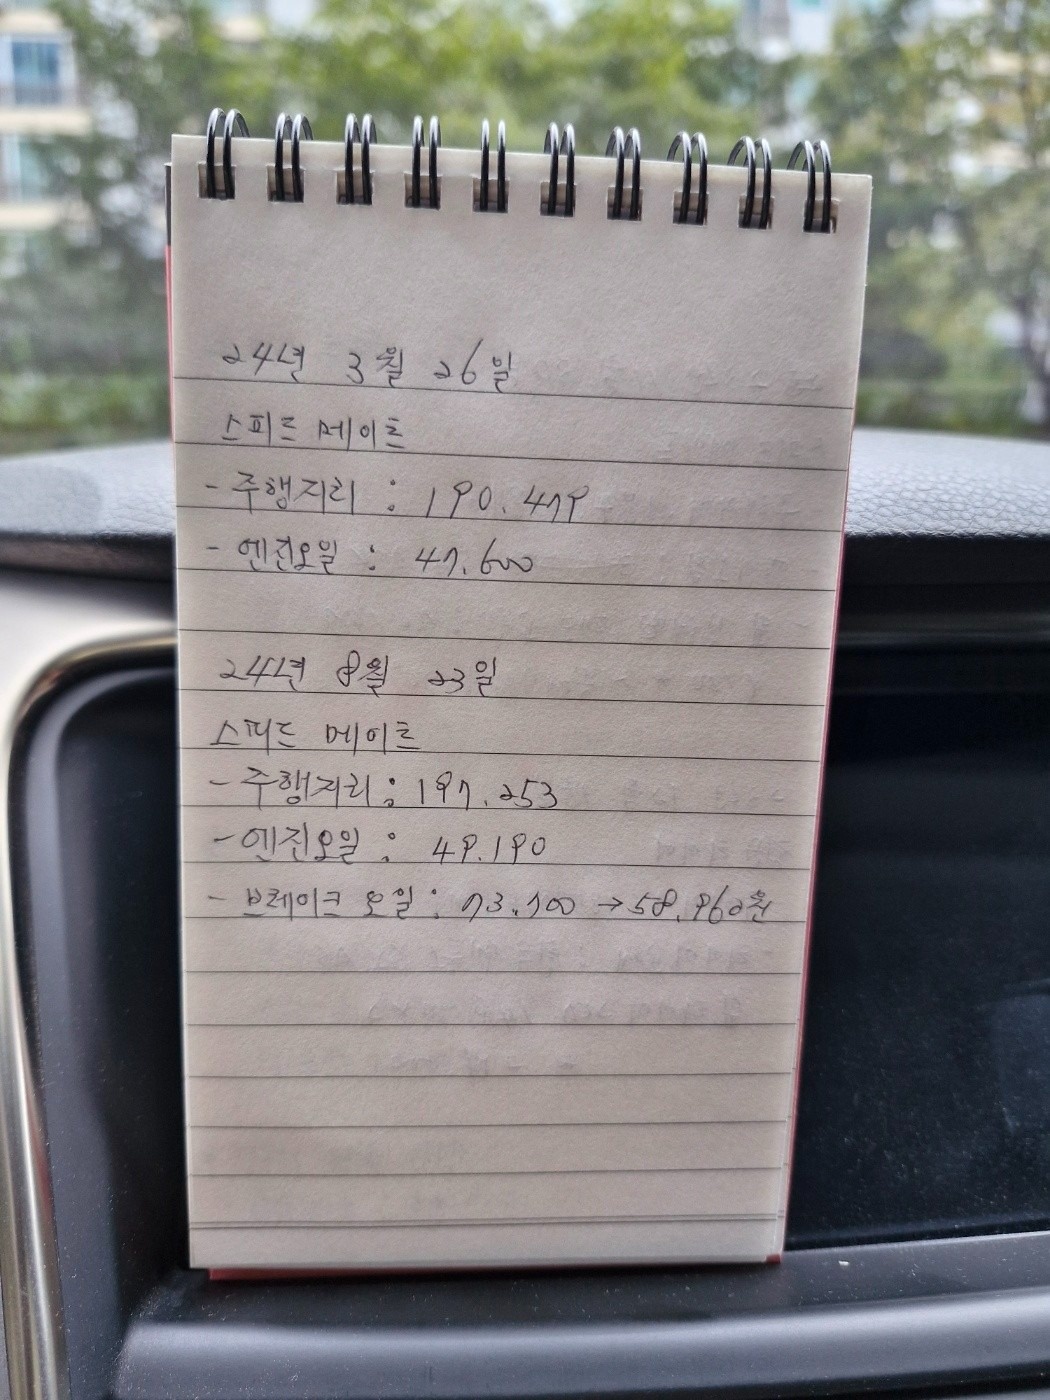 24년 3월 26일
스피드 메이트
- 주행거리 : 190.479
- 엔진오일 : 47.600
24년 8월 23일
스피드 메이트
- 주행거리 : 197.253
- 엔진오일 : 49.190
- 브레이크 오일 : 73.700 → 58.960원